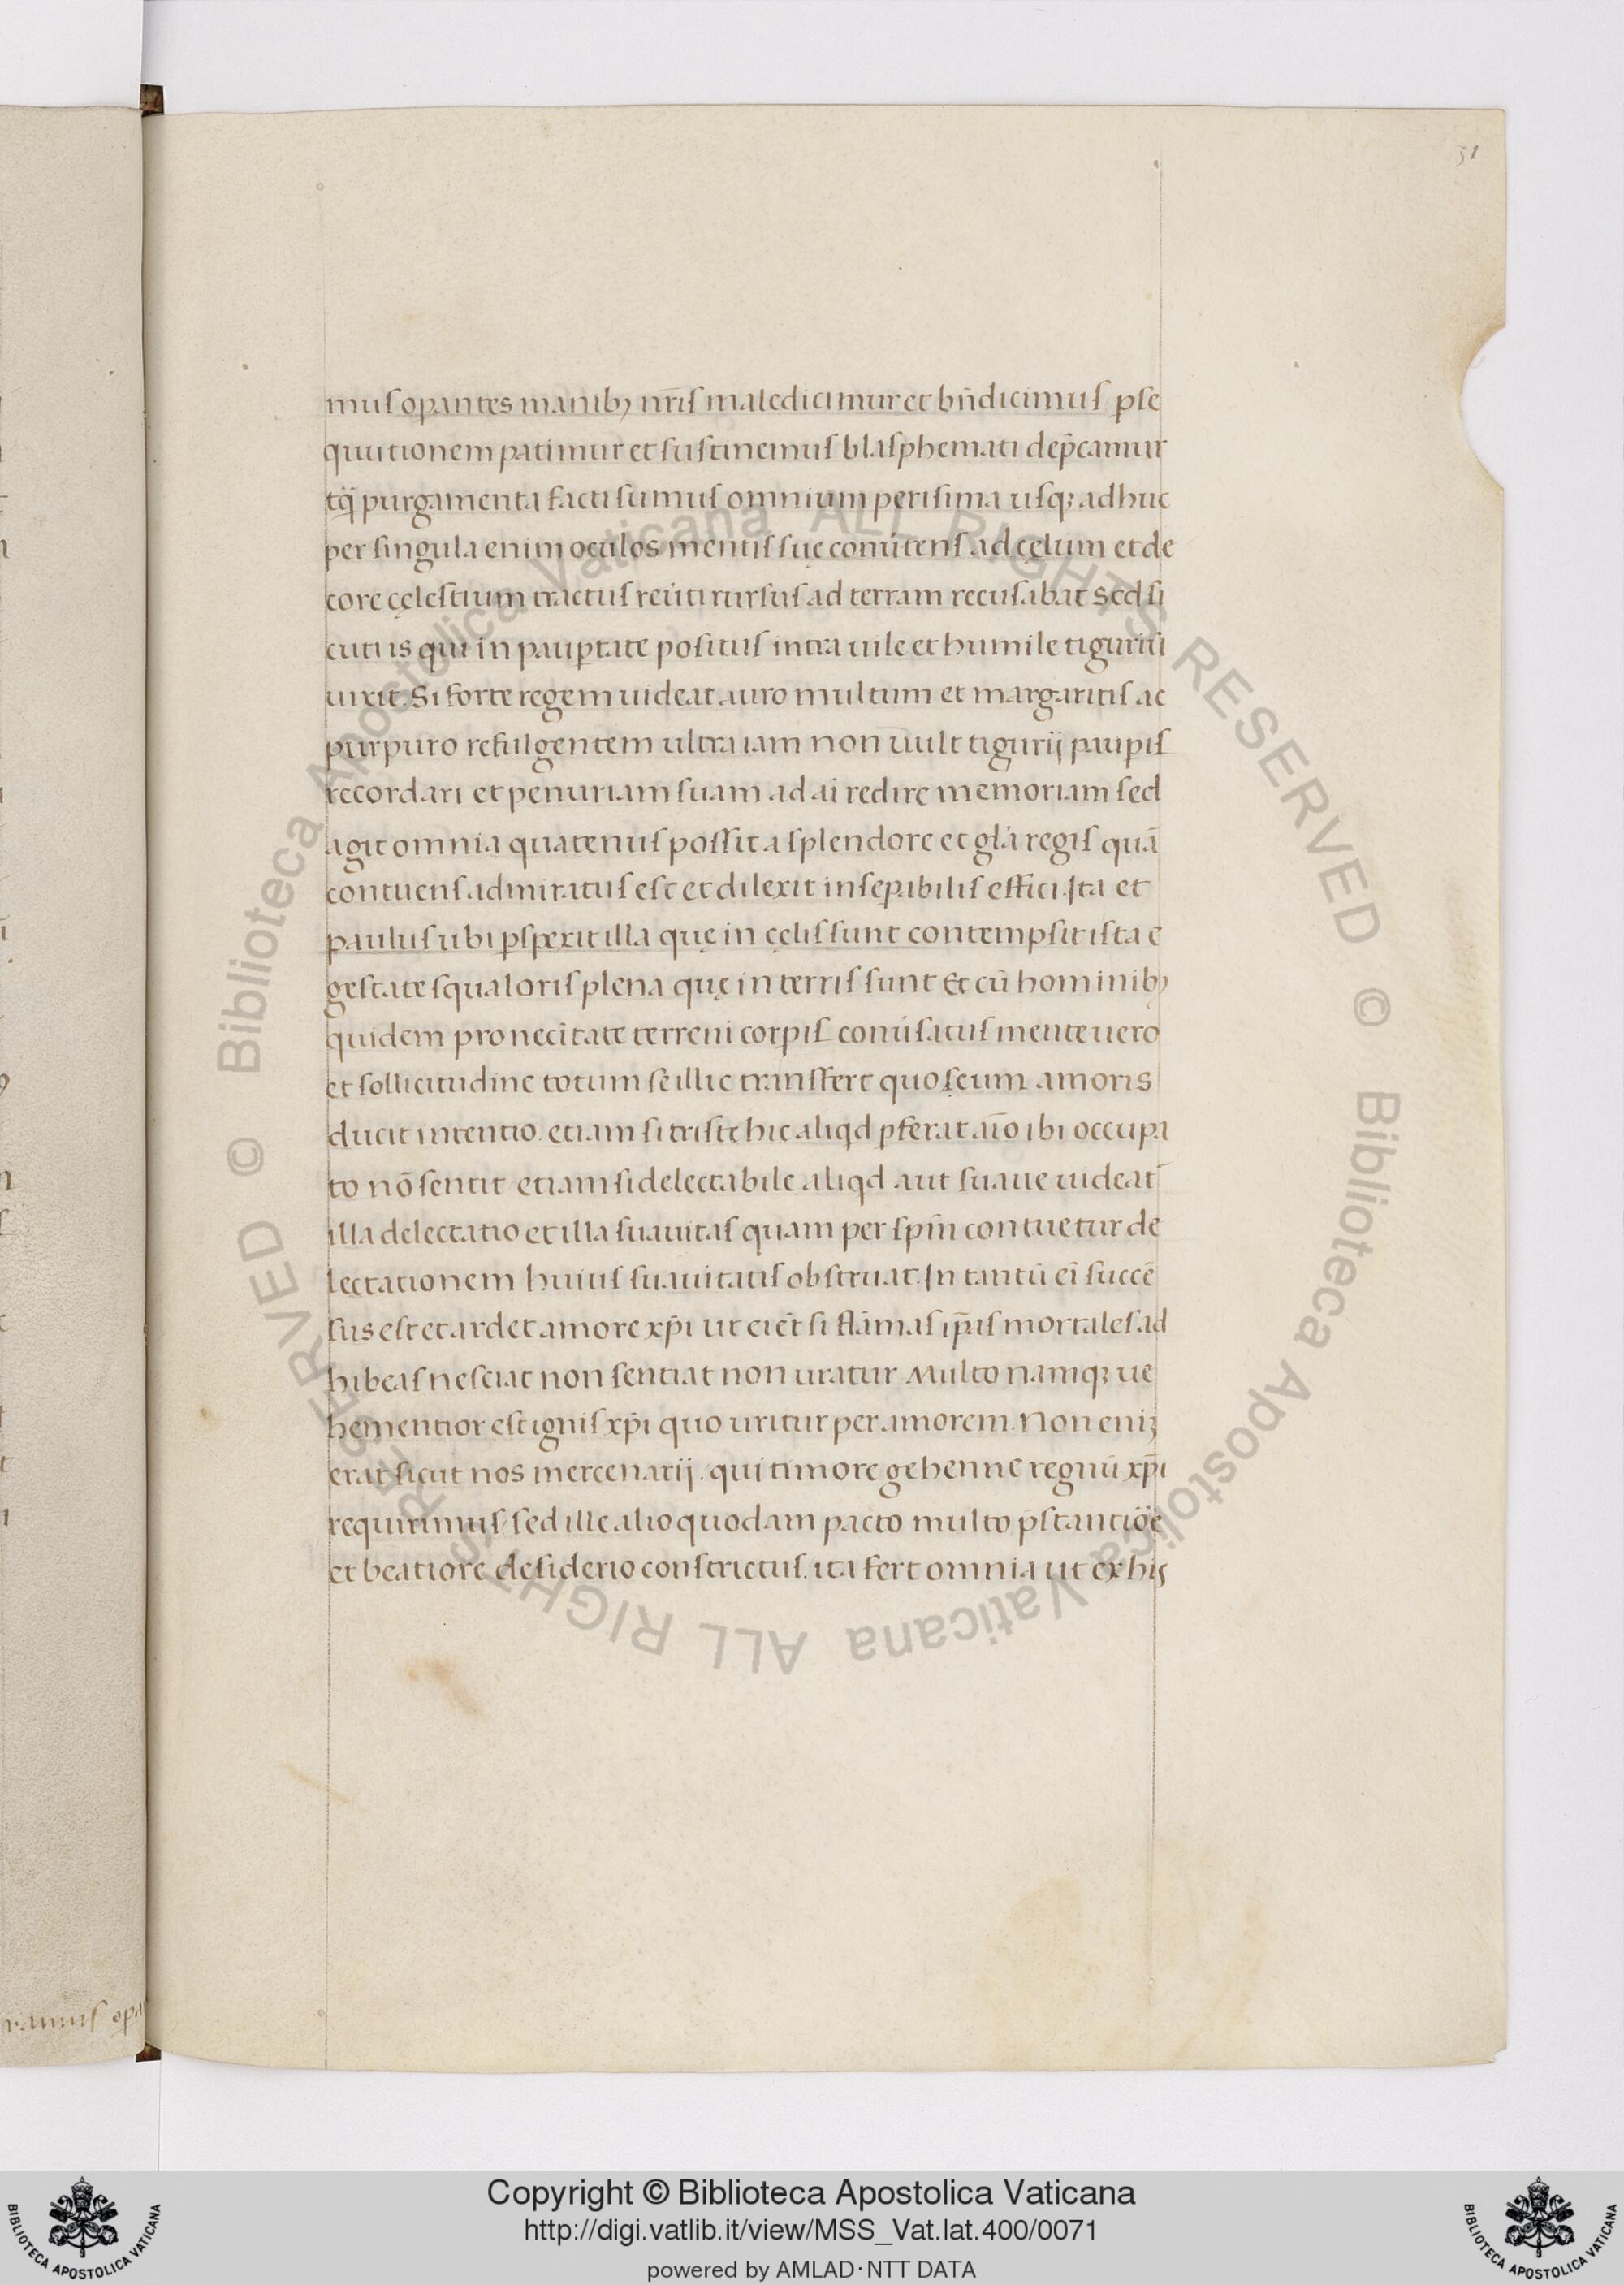 31
muſ opantes manibꝫ nr̄iſ maledicimur et bn̄dicimuſ pſe
quutionem patimur et ſuſtinemuſ blaſphemati dep̄camur
tq̄ purgamenta facti ſumuſ omnium periſima uſqꝫ adhuc
per ſingula enim oculos mentiſ ſuę conu̇tenſ ad cęlum et de
core cęleſtium tractuſ reu̇ti rurſuſ ad terram recuſabat Sed ſi
cuti is qui in paup̄tate poſituſ intra uile et humile tiguriū
uixit. Si forte regem uideat auro multum et margaritiſ ac
purpuro refulgentem ultra iam non uult tigurij paupiſ
recordari et penuriam ſuam ad ai̅ redire memoriam ſed
agit omnia quatenuſ poſſit a ſplendore et gl̄a regiſ quā
contuenſ admiratuſ eſt et dilexit inſeꝑabiliſ effici. Ita et
pauluſ ubi ꝑſpexit illa quę in cęliſ ſunt contempſit iſta e
geſtate ſqualoriſ plena quę in terriſ ſunt Et cū hominibꝫ
quidem pro neci̅tate terreni corpiſ conu̇ſatuſ mente uero
et ſollicitudine totum ſe illic tranſfert quo ſecum amoris
ducit intentio. etiam ſi triſte hic aliqd pferat aīo ibi occupa
to nō ſentit etiam ſi delectabile aliqd aut ſuaue uideat̄
illa delectatio et illa ſuauitaſ quam per ſpm̄ contuetur de
lectationem huiuſ ſuauitatiſ obſtruat. In tantū ei̅ ſuccē
ſus eſt et ardet amore xp̄i ut ei et̄ ſi flāmaſ ip̄aſ mortaleſ ad
hibeaſ neſciat non ſentiat non uratur Multo namqꝫ ue
hementior eſt igniſ xp̄i quo uritur per amorem. Non eniꝫ
erat ſicut nos mercenarij. qui timore gehenne regnū xp̄i
requirimuſ ſed ille alio quodam pacto multo p̄ſtantiōe
et beatiore deſiderio conſtrictuſ. ita fert omnia ut ex his
ramuſ opa
© Biblioteca Apostolica Vaticana ALL RIGHTS RESERVED
© Biblioteca Apostolica Vaticana ALL RIGHTS RESERVED
Copyright © Biblioteca Apostolica Vaticana
http://digi.vatlib.it/view/MSS_Vat.lat.400/0071
powered by AMLAD·NTT DATA
BIBLIOTECA APOSTOLICA VATICANA
BIBLIOTECA APOSTOLICA VATICANA